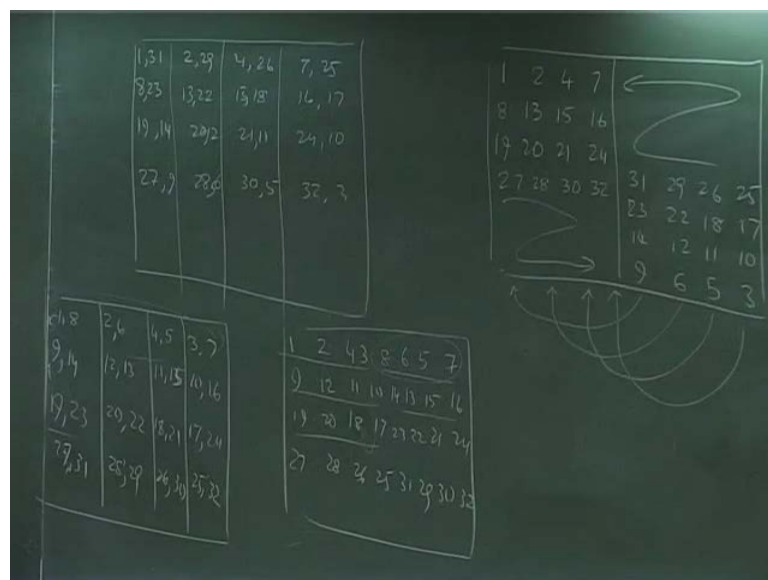 1,31 2,29 4,26 7,25
8,23 13,22 15,18 16,17
19,14 20,12 21,11 24,10
27,9 28,6 30,5 32,3
1 2 4 7
8 13 15 16
19 20 21 24
27 28 30 32 31 29 26 25
23 22 18 17
14 12 11 10
9 6 5 3
1,8 2,6 4,5 3,7
9,14 12,13 11,15 10,16
19,23 20,22 18,21 17,24
27,31 28,29 26,30 25,32
1 2 4 3 8 6 5 7
9 12 11 10 14 13 15 16
19 20 18 17 23 22 21 24
27 28 26 25 31 29 30 32